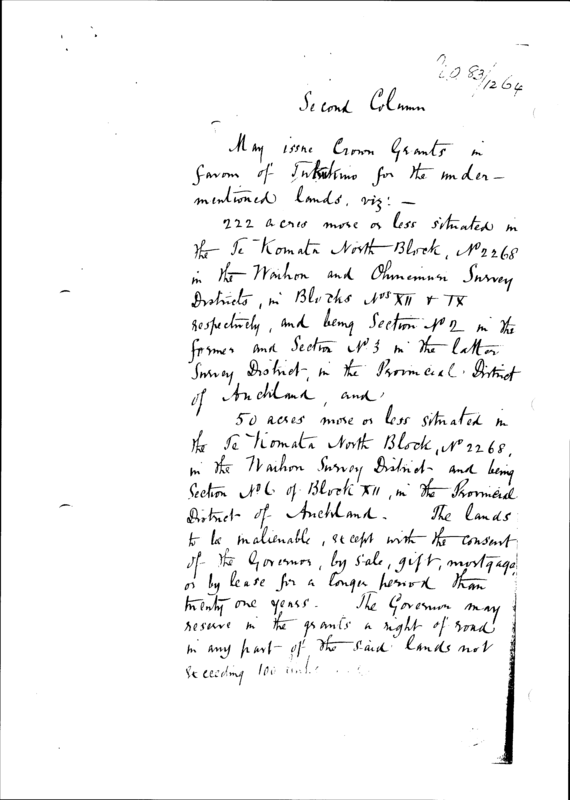 N.O. 83/1264
Second Column
May issue Crown Grants in
favour of Tukukino for the under-
mentioned lands, viz: —
222 acres more or less situated in
the Te Komata North Block, Nº 2268
in the Waihou and Ohinemuri Survey
Districts, in Blocks Nos XII & IX
respectively, and being Section Nº 2 in the
former and Section Nº 3 in the latter
Survey District, in the Provincial District
of Auckland, and
50 acres more or less situated in
the Te Komata North Block, Nº 2268,
in the Waihou Survey District and being
Section Nº 6 of Block XII, in the Provincial
District of Auckland. The lands
to be inalienable, except with the consent
of the Governor, by sale, gift, mortgage,
or by lease for a longer period than
twenty one years. The Governor may
reserve in the grants a right of road
in any part of the said lands not
exceeding 100